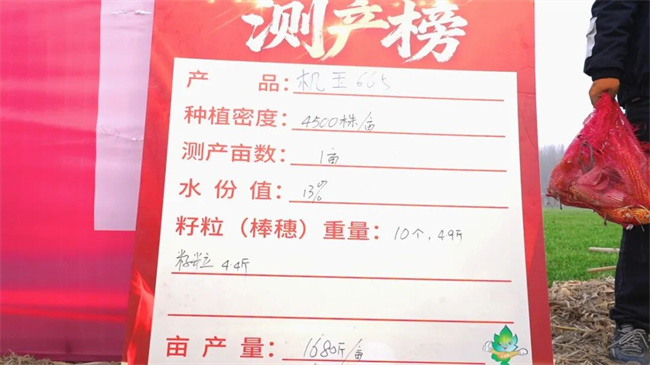 测产榜
产 品：机玉665
种植密度：4500株/亩
测产亩数：1亩
水 份 值：13%
籽粒（棒穗）重量：10个，4.9斤
籽粒 4.4斤
亩 产 量：1680斤/亩